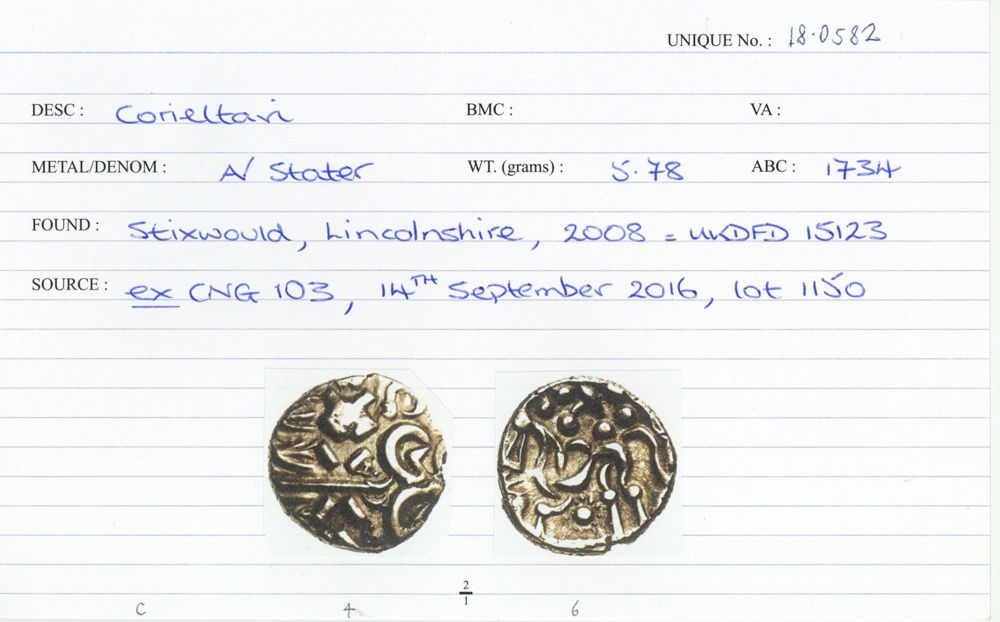 UNIQUE No. : 18.0582
DESC : Corieltavi BMC : VA :
METAL/DENOM : A/ Stater WT. (grams) : 5.78 ABC : 1734
FOUND : Stixwould, Lincolnshire, 2008 = UKDFD 15123
SOURCE : ex CNG 103, 14TH September 2016, lot 1150
2
1
C 4 6